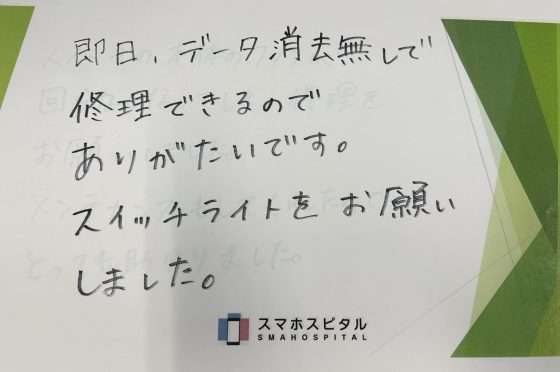 即日、データ消去無しで
修理できるので
ありがたいです。
スイッチライトをお願い
しました。
スマホスピタル
SMAHOSPITAL